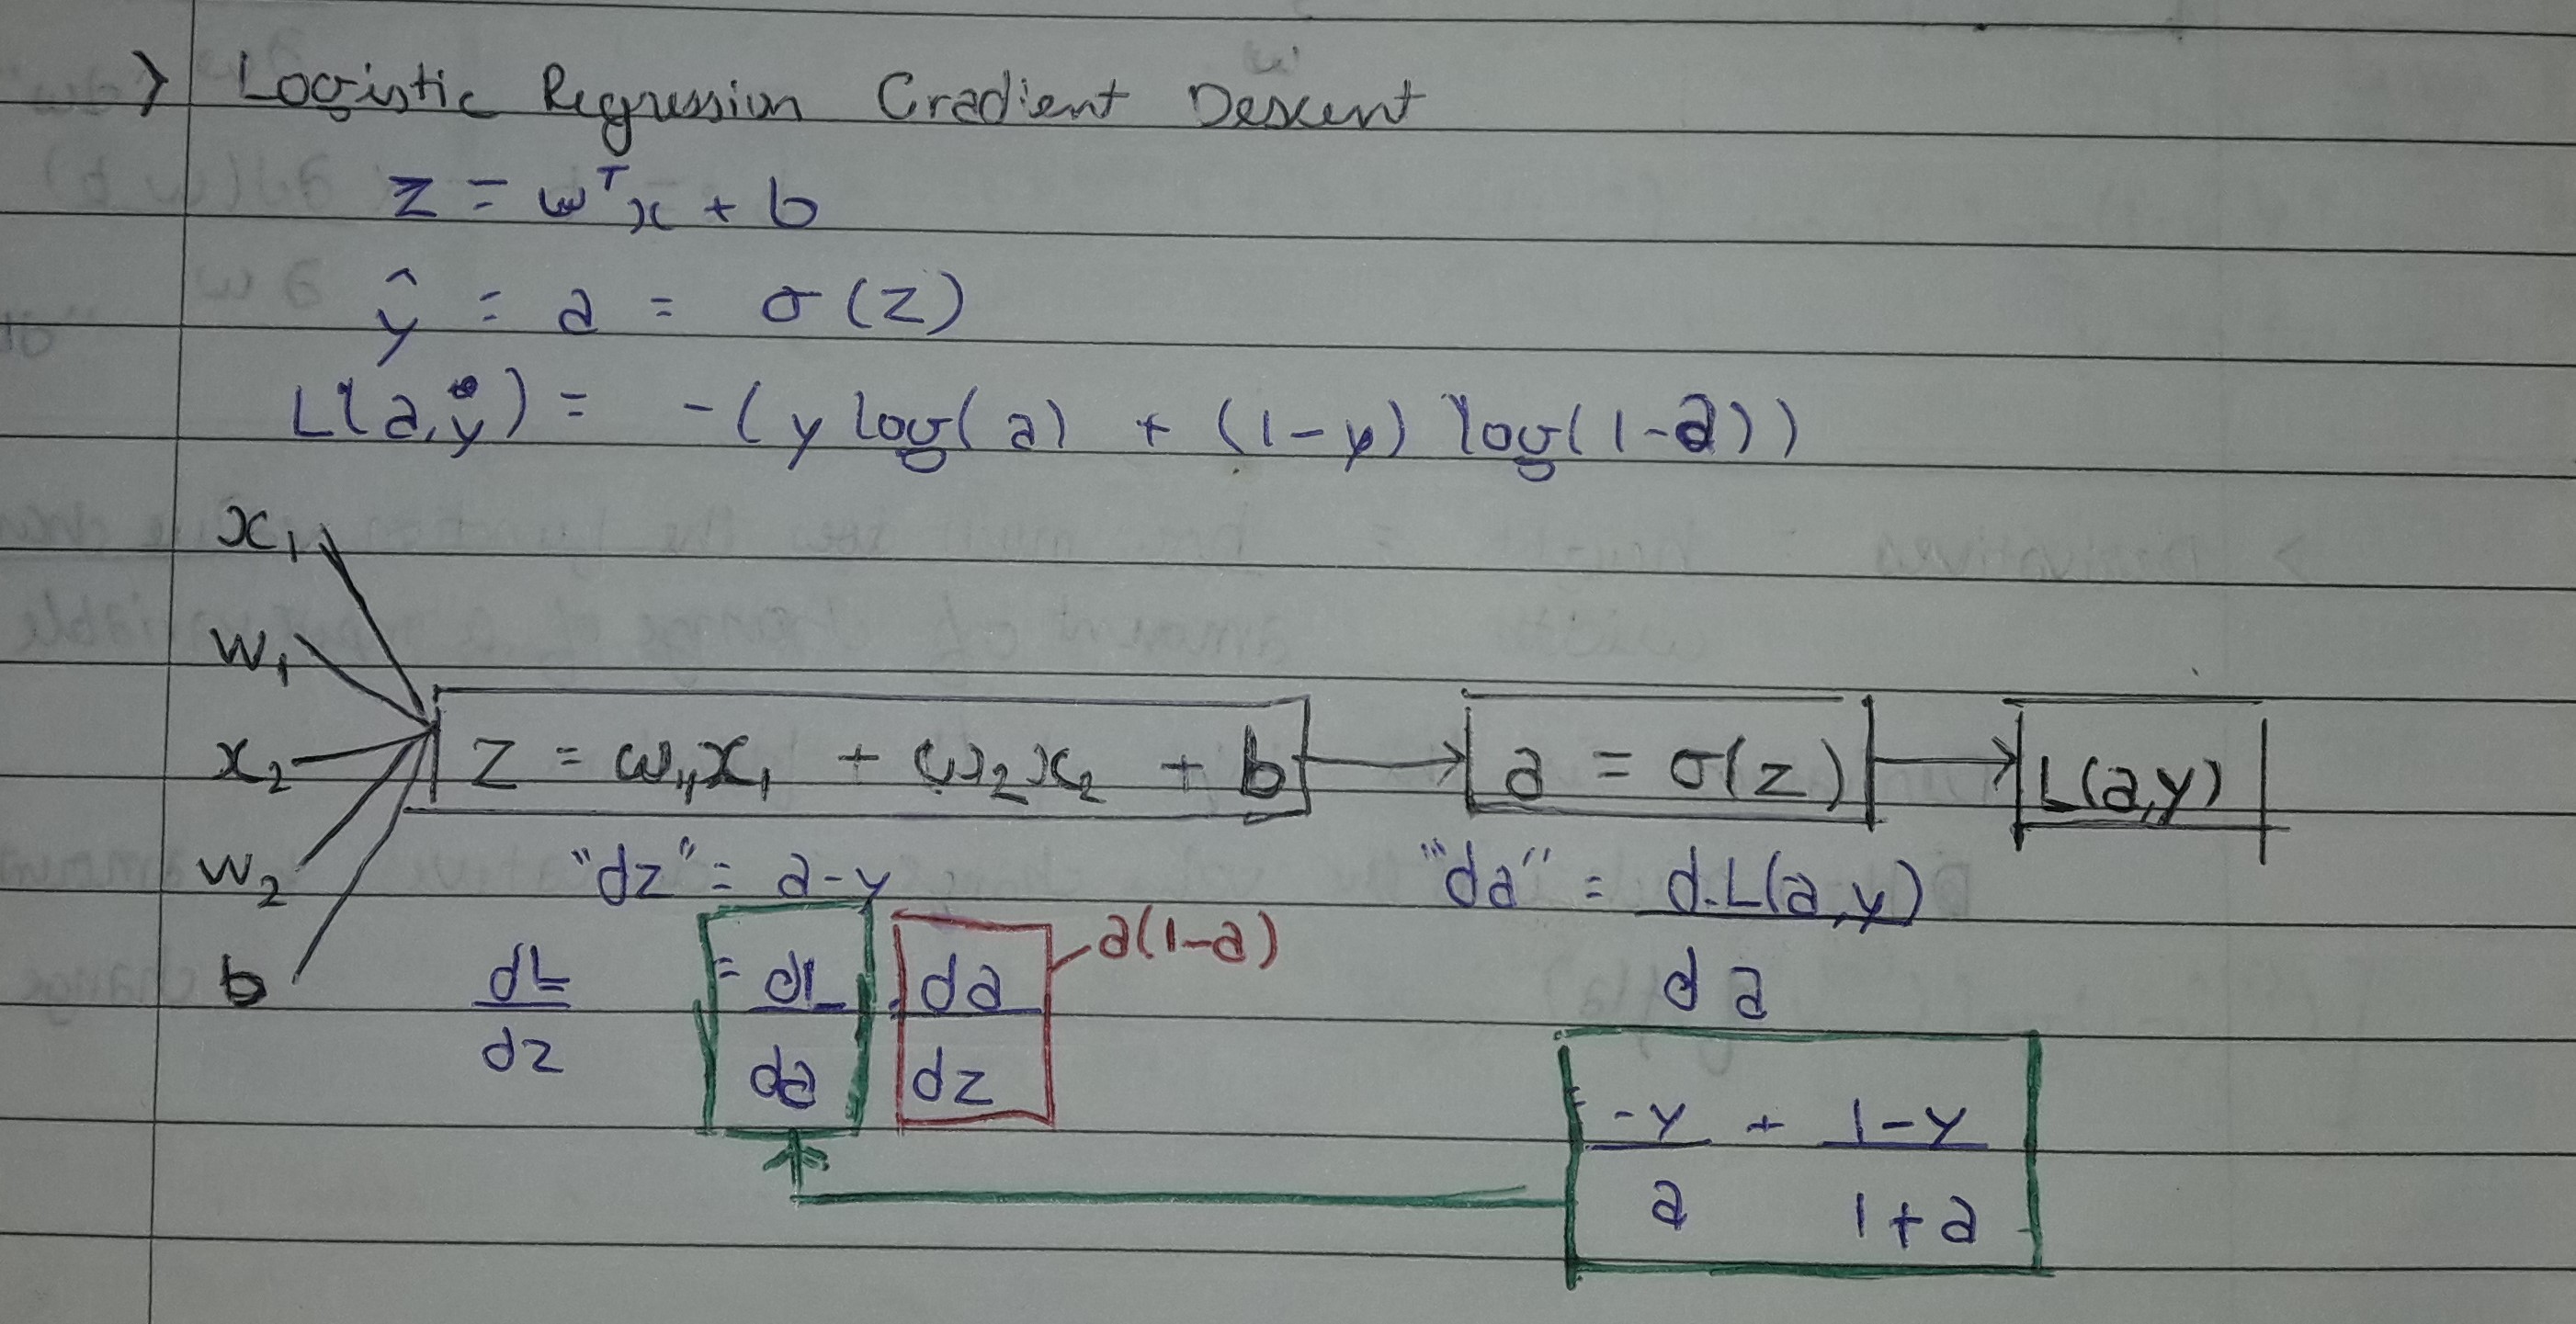 > Logistic Regression Gradient Descent
z = wᵀx + b
ŷ = a = σ(z)
L(a,y) = -(y log(a) + (1-y) log(1-a))
x₁
w₁
x₂ z = w₁x₁ + w₂x₂ + b → a = σ(z) → L(a,y)
w₂ "dz" = a-y "da" = d.L(a,y)
b dL = dL . da a(1-a) da
dz da dz
= -y + 1-y
a 1+a